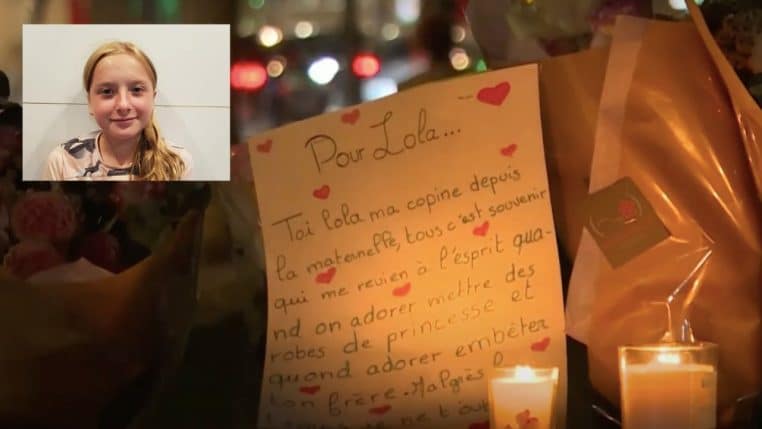 Pour Lola...
Toi lola ma copine depuis
la maternelle, tous c'est souvenir
qui me revien à l'esprit qua-
nd on adorer mettre des
robes de princesse et
quand adorer embêter
ton frère. Malgrès
ne t'